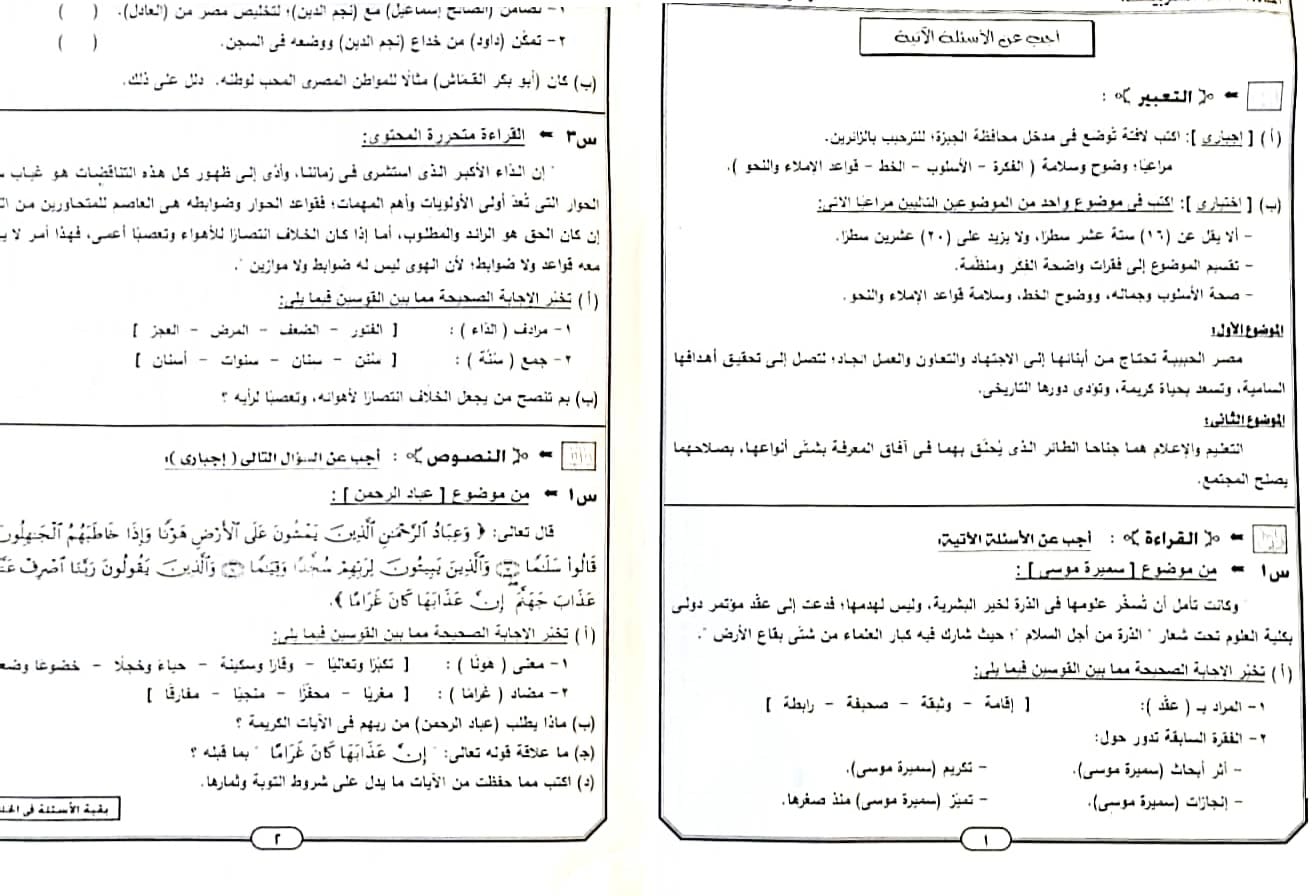 أجب عن الأسئلة الآتية
التعبير :
(أ) [ إجبارى ]: اكتب لافتة تُوضع فى مدخل محافظة الجيزة؛ للترحيب بالزائرين.
مراعيًا؛ وضوح وسلامة ( الفكرة – الأسلوب – الخط – قواعد الإملاء والنحو ).
(ب) [ اختيارى ]: اكتب فى موضوع واحد من الموضوعين التاليين مراعيًا الآتى:
– ألا يقل عن (١٦) ستة عشر سطرًا، ولا يزيد على (٢٠) عشرين سطرًا.
– تقسيم الموضوع إلى فقرات واضحة الفكر ومنظمة.
– صحة الأسلوب وجماله، ووضوح الخط، وسلامة قواعد الإملاء والنحو.
الموضوع الأول:
مصر الحبيبة تحتاج من أبنائها إلى الاجتهاد والتعاون والعمل الجاد؛ لتصل إلى تحقيق أهدافها
السامية، وتسعد بحياة كريمة، وتؤدى دورها التاريخى.
الموضوع الثانى:
التعليم والإعلام هما جناحا الطائر الذى يُحلّق بهما فى آفاق المعرفة بشتّى أنواعها، بصلاحهما
يصلح المجتمع.
القراءة : أجب عن الأسئلة الآتية:
س١ من موضوع [ سميرة موسى ]:
وكانت تأمل أن تُسخّر علومها فى الذرة لخير البشرية، وليس لهدمها؛ فدعت إلى عقد مؤتمر دولى
بكلية العلوم تحت شعار " الذرة من أجل السلام "؛ حيث شارك فيه كبار العلماء من شتّى بقاع الأرض ".
(أ) تخيّر الإجابة الصحيحة مما بين القوسين فيما يلى:
١– المراد بـ ( عقد ): [ إقامة – وثيقة – صحيفة – رابطة ]
٢– الفقرة السابقة تدور حول:
– أثر أبحاث (سميرة موسى). – تكريم (سميرة موسى).
– إنجازات (سميرة موسى). – تميّز (سميرة موسى) منذ صغرها.
١
١– تضامن (الصالح إسماعيل) مع (نجم الدين)؛ لتخليص مصر من (العادل). ( )
٢– تمكّن (داود) من خداع (نجم الدين) ووضعه فى السجن. ( )
(ب) كان (أبو بكر القمّاش) مثالًا للمواطن المصرى المحب لوطنه. دلل على ذلك.
س٣ القراءة متحررة المحتوى:
" إن الداء الأكبر الذى استشرى فى زماننا، وأدّى إلى ظهور كل هذه التناقضات هو غياب
الحوار التى تُعدّ أولى الأولويات وأهم المهمات؛ فقواعد الحوار وضوابطه هى العاصم للمتحاورين من
إن كان الحق هو الرائد والمطلوب، أما إذا كان الخلاف انتصارًا للأهواء وتعصبًا أعمى، فهذا أمر لا
معه قواعد ولا ضوابط؛ لأن الهوى ليس له ضوابط ولا موازين ".
(أ) تخيّر الإجابة الصحيحة مما بين القوسين فيما يلى:
١– مرادف ( الداء ) : [ الفتور – الضعف – المرض – العجز ]
٢– جمع ( سُنّة ) : [ سُنن – سنان – سنوات – أسنان ]
(ب) بم تنصح من يجعل الخلاف انتصارًا لأهوائه، وتعصبًا لرأيه ؟
النصوص : أجب عن السؤال التالى ( إجبارى ):
س١ من موضوع [ عباد الرحمن ]:
قال تعالى: ﴿ وَعِبَادُ الرَّحْمَٰنِ الَّذِينَ يَمْشُونَ عَلَى الْأَرْضِ هَوْنًا وَإِذَا خَاطَبَهُمُ الْجَاهِلُونَ
قَالُوا سَلَامًا وَالَّذِينَ يَبِيتُونَ لِرَبِّهِمْ سُجَّدًا وَقِيَامًا وَالَّذِينَ يَقُولُونَ رَبَّنَا اصْرِفْ عَنَّا
عَذَابَ جَهَنَّمَ إِنَّ عَذَابَهَا كَانَ غَرَامًا ﴾.
(أ) تخيّر الإجابة الصحيحة مما بين القوسين فيما يلى:
١– معنى ( هونًا ) : [ تكبّرًا وتعاليًا – وقارًا وسكينة – حياءً وخجلًا – خضوعًا
٢– مضاد ( غرامًا ) : [ مغريًا – محفّزًا – منجيًا – مفارقًا ]
(ب) ماذا يطلب (عباد الرحمن) من ربهم فى الآيات الكريمة ؟
(ج) ما علاقة قوله تعالى: " إِنَّ عَذَابَهَا كَانَ غَرَامًا " بما قبله ؟
(د) اكتب مما حفظت من الآيات ما يدل على شروط التوبة وثمارها.
بقية الأسئلة فى
٢